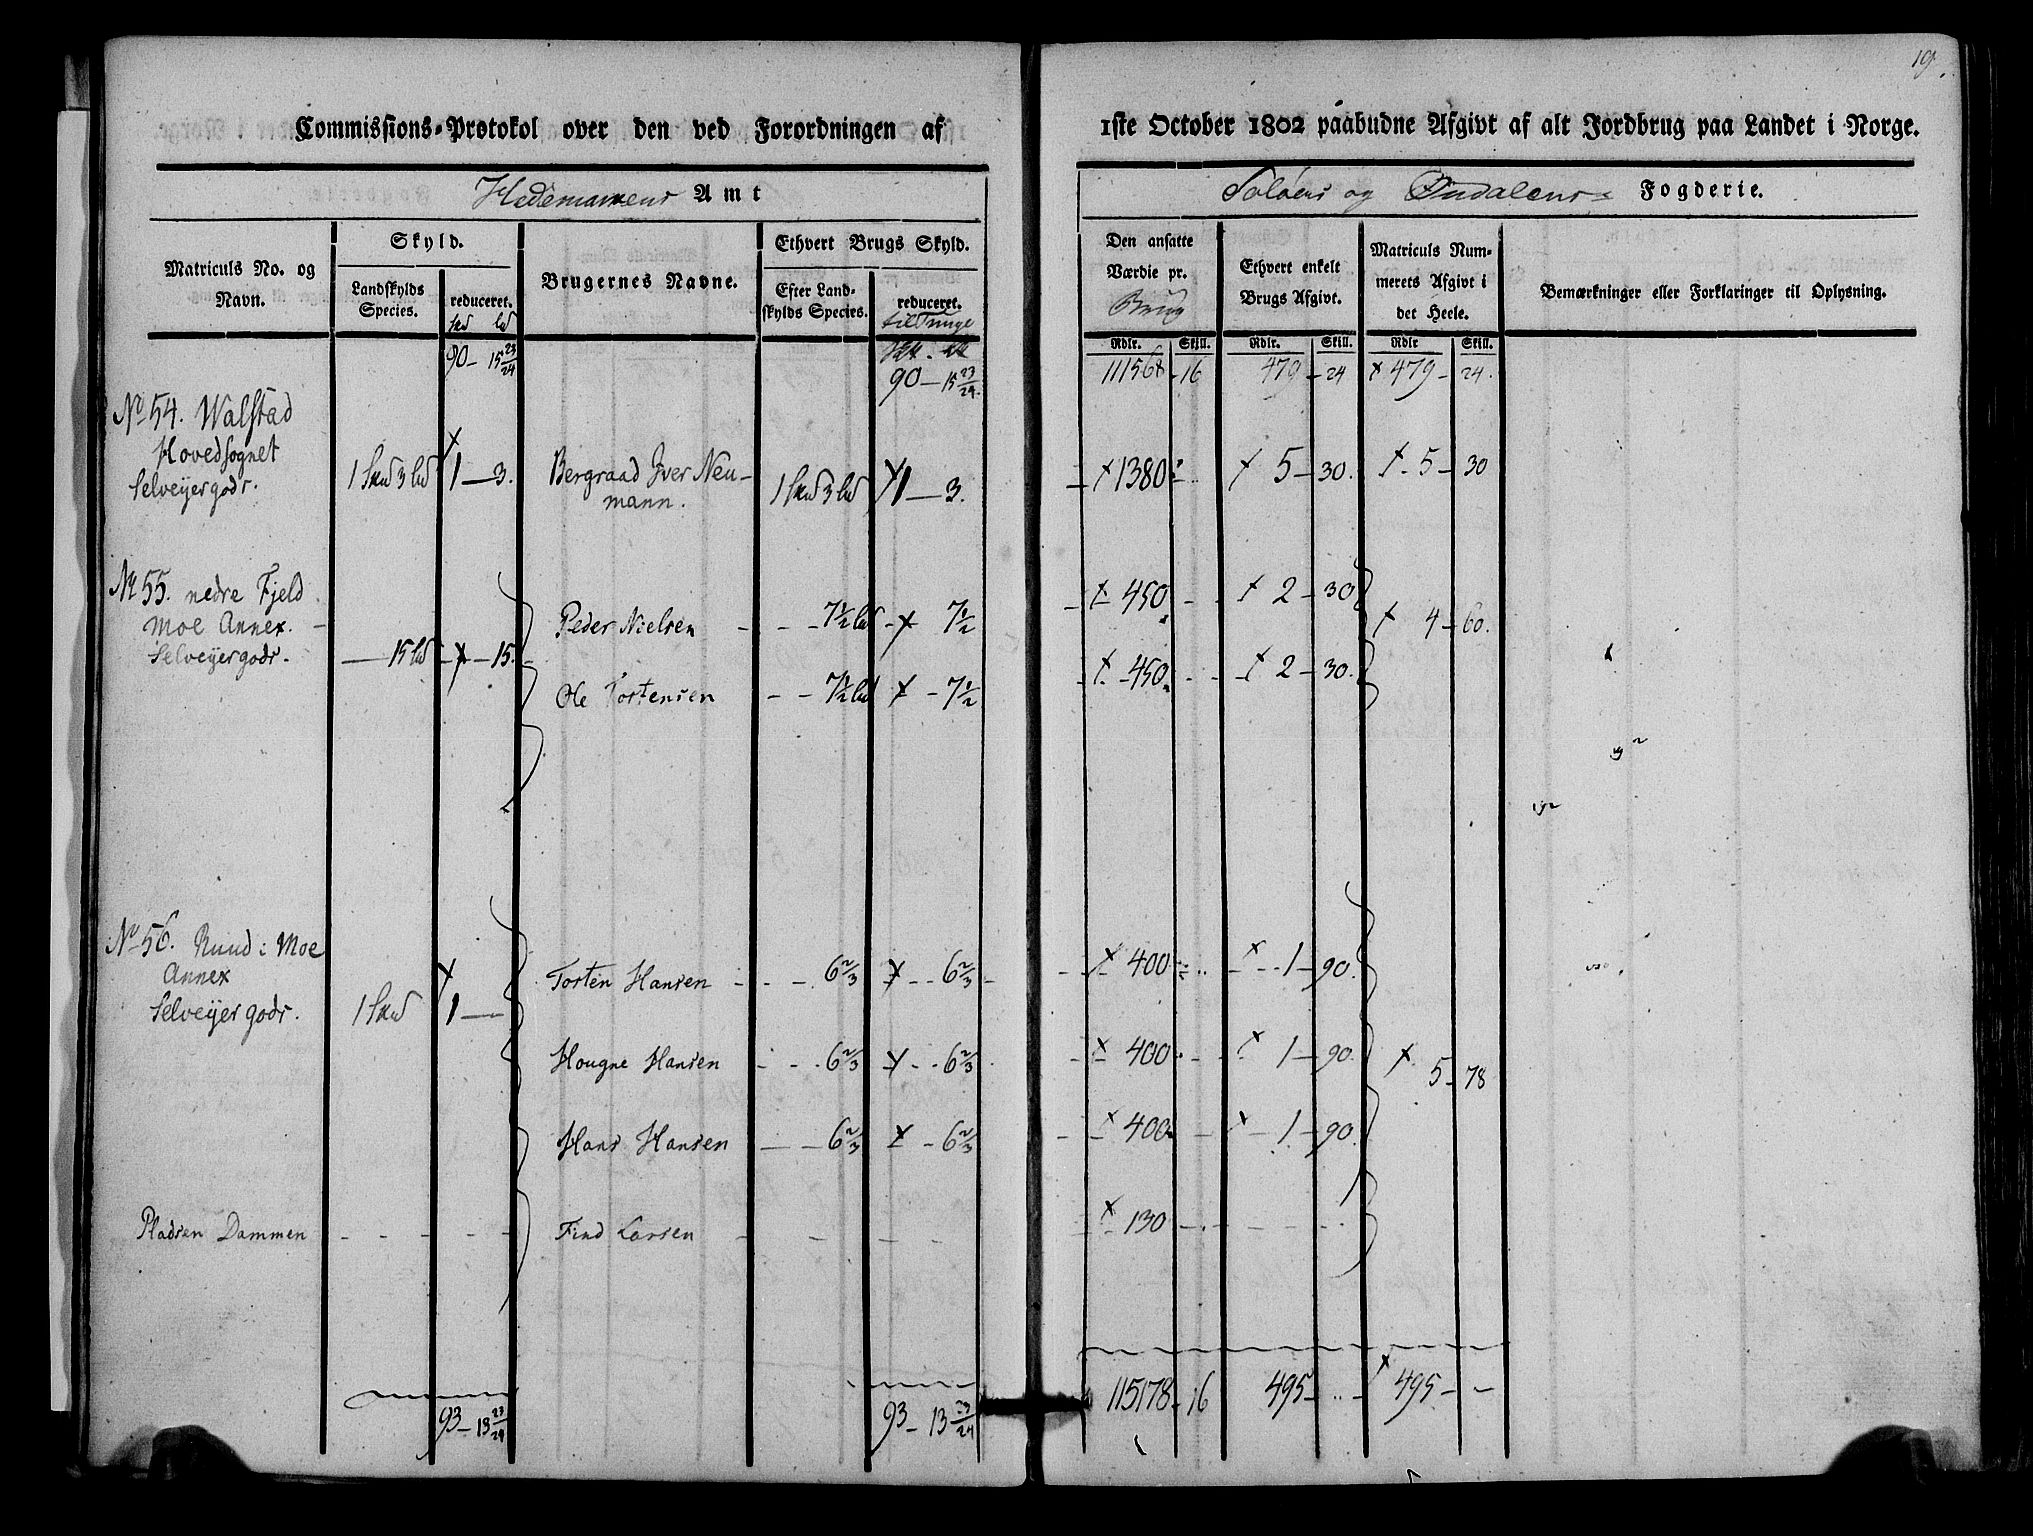 19.
Commissions-Protokol over den ved Forordningen af 1ste October 1802 paabudne Afgivt af alt Jordbrug paa Landet i Norge.
Hedemarkens Amt
Soløers og Oudalens Fogderie.
Matriculs No. og Navn.
Skyld.
Landskylds Species.
reduceret.
Skd Ld
Brugernes Navne.
Ethvert Brugs Skyld.
Efter Landskylds Species.
reduceret.
til Tunge
Den ansatte Værdie pr. Brug
Ethvert enkelt Brugs Afgivt.
Matriculs Nummerets Afgivt i det Heele.
Bemærkninger eller Forklaringer til Oplysning.
Rdlr. Skill. Rdlr. Skill. Rdlr Skill.
90 - 15 23/24 90 - 15 23/24 111568 - 16 479 - 24 x 479 - 24.
No 54. Walstad
Hovedsognet
Selveyergods. 1 Skd 3 Ld 1 - 3. Bergraad Iver Neumann. 1 Skd 3 Ld 1 - 3. 1380 5 - 30. 5 - 30
No 55. nedre Fjeld
Moe Annex.
Selveyergods. 15 Ld 15.
Peder Nielsen 7 1/2 Ld 7 1/2 450 2 - 30 4 - 60.
Ole Tostensen 7 1/2 Ld 7 1/2 450 2 - 30.
No 56. Ruud i Moe
Annex
Selveyergods. 1 Skd 1 -
Tosten Hansen 6 2/3 6 2/3 400 1 - 90.
Hougne Hansen 6 2/3 6 2/3 400 1 - 90. 5 - 78
Hans Hansen 6 2/3 6 2/3 400 1 - 90.
Pladsen Dammen Find Larsen 130
93 - 13 23/24 93 - 13 23/24 115178 - 16 495 - 495 -